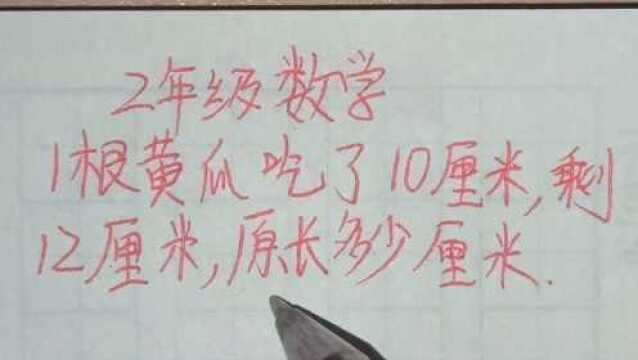 2年级数学
1根黄瓜吃了10厘米,剩
12厘米,原长多少厘米.